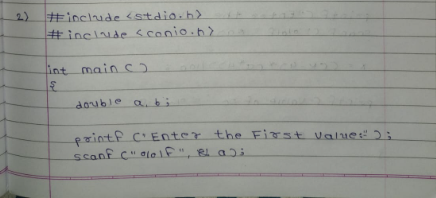 2) #include <stdio.h>
#include <conio.h>
int main()
{
double a, b;
printf ("Enter the First value:");
scanf ("%lf", & a);